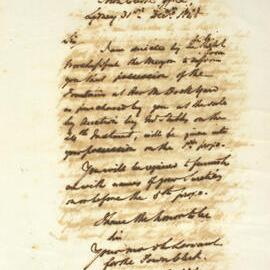 Town Clerk's Office
Sydney 31st Decr 184
Sir
I am directed by the Right
Worshipful the Mayor to inform
you that possession of the
Fountain at
purchased by you at the sale
by Auction by Mr Stubbs on the
Instant, will be given into
your possession on the 1st prox.
You will be required to furnish
with names of your Sureties
on or before the 5th prox.
I have the honor to be
Sir
Your mo ob Servant
for the Town Clerk